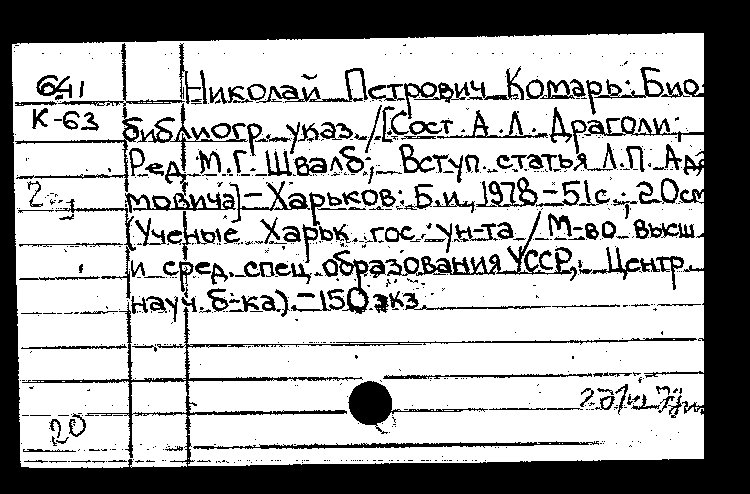 Николай Петрович Комарь: Био-
К-63
библиогр. указ. /[Сост. А. Л. Драголи;
Ред М.Г. Швалб; Вступ. статья Л.П. Ада
мовича] - Харьков: Б.и., 1978 - 51с.; 20см
(Ученые Харьк. гос. ун-та / М-во высш.
и сред. спец. образования УССР, Центр.
науч. б-ка). - 150 экз.
20